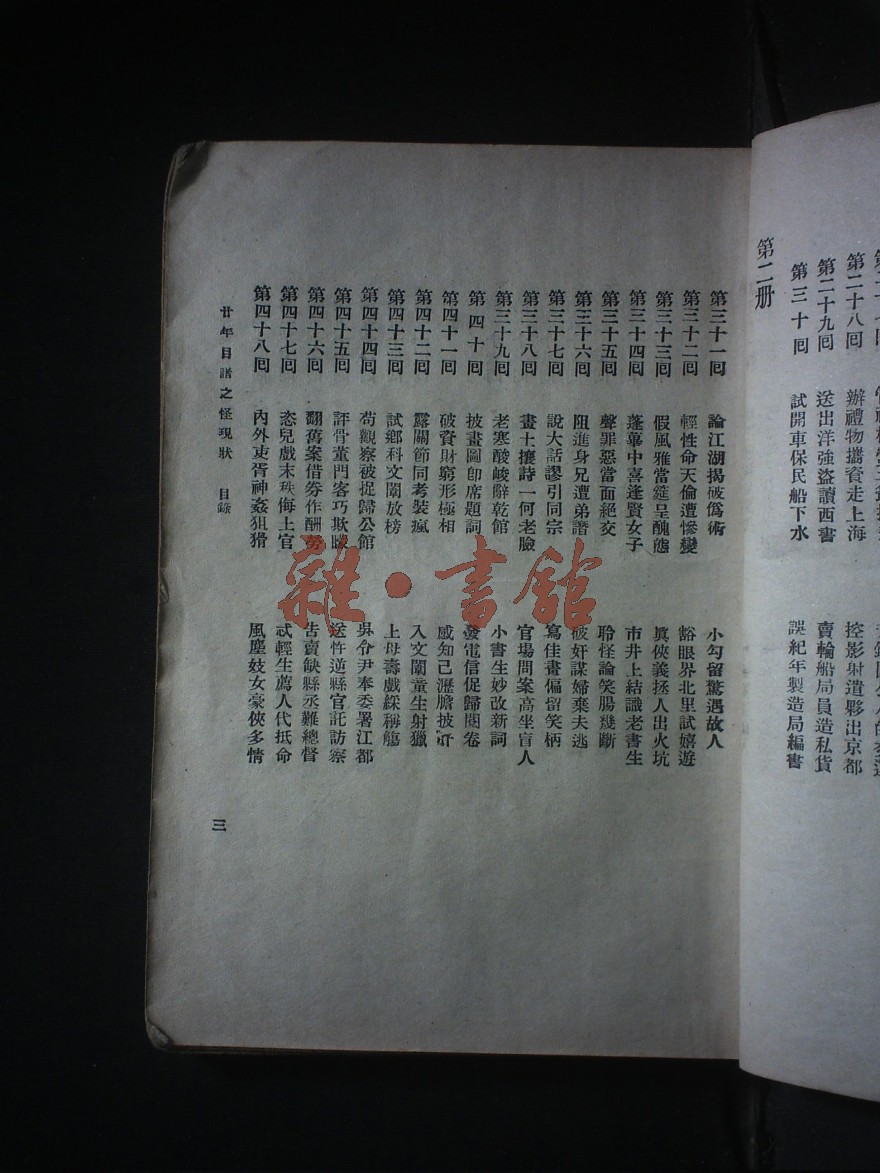 第二十八回 辦禮物攜資走上海 控影射遣夥出京都
第二十九回 送出洋強盜讀西書 賣輪船局員造私貨
第三十回 試開車保民船下水 誤紀年製造局編書
第二册
第三十一回 論江湖揭破僞術 小勾留驚遇故人
第三十二回 輕性命天倫遭慘變 豁眼界北里試嬉遊
第三十三回 假風雅當筵呈醜態 眞俠義拯人出火坑
第三十四回 蓬蓽中喜逢賢女子 市井上結識老書生
第三十五回 聲罪惡當面絕交 聆怪論笑腸幾斷
第三十六回 阻進身兄遭弟譖 破奸謀婦棄夫逃
第三十七回 說大話謬引同宗 寫佳畫偏留笑柄
第三十八回 畫士攘詩一何老臉 官場問案高坐盲人
第三十九回 老寒酸峻辭乾館 小書生妙改新詞
第四十回 披畫圖卽席題詞 發電信促歸閱卷
第四十一回 破資財窮形極相 感知己瀝膽披肝
第四十二回 露關節同考裝瘋 入文闈童生射獵
第四十三回 試鄉科文闈放榜 上母壽戲綵稱觴
第四十四回 苟觀察被捉歸公館 吳令尹奉委署江都
第四十五回 評骨董門客巧欺矇 送忤逆縣官託訪察
第四十六回 翻舊案借券作酬勞 告賣缺縣丞難總督
第四十七回 恣兒戲末秩侮上官 忒輕生薦人代抵命
第四十八回 內外吏胥神姦狙猾 風塵妓女豪俠多情
廿年目睹之怪現狀 目錄
三
雜·書館